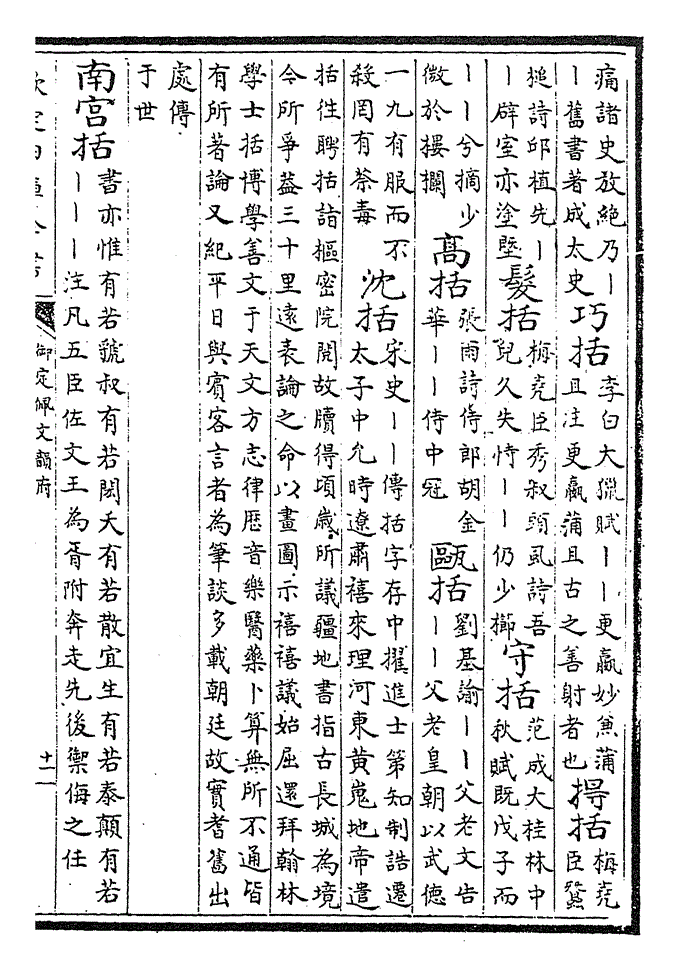 痛諸史放絶乃｜
｜舊書著成太史
巧括
李白大獵賦｜｜更羸妙兼蒲
且注更羸蒲且古之善射者也
㨶括
梅堯
臣蠶
槌詩卬植先｜
｜辟室亦塗塈
髮括
梅堯臣秀叔頭虱詩吾
兒久失恃｜｜仍少櫛
守括
范成大桂林中
秋賦既戊子而
｜｜兮摘少
微於樓攔
高括
張雨詩侍郎胡金
華｜｜侍中冠
甌括
劉基諭｜｜父老文告
｜｜父老皇朝以武德
一九有服而不
殺罔有荼毒
沈括
宋史｜｜傳括字存中擢進士第知制誥遷
太子中允時遼肅禧來理河東黄嵬地帝遣
括徃聘括詣樞密院閲故牘得頃歲所議疆地書指古長城為境
今所爭葢三十里遠表論之命以畫圖示禧禧議始屈還拜翰林
學士括博學善文于天文方志律厯音樂醫藥卜算無所不通皆
有所著論又紀平日與賓客言者為筆談多載朝廷故實耆舊出
處傳
于世
南宫括
書亦惟有若虢叔有若閎夭有若散宜生有若泰顛有若
｜｜｜注凡五臣佐文王為胥附奔走先後禦侮之任
欽定四庫全書
御定佩文韻府
十一